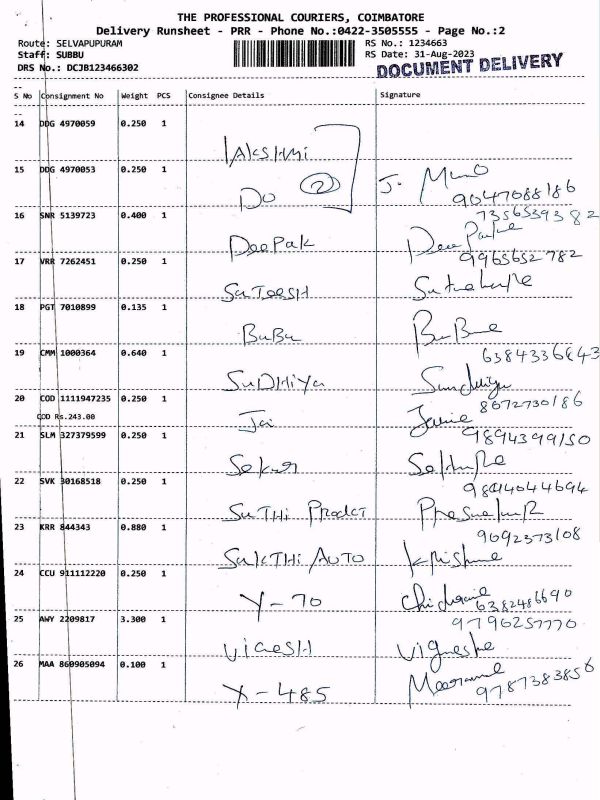 THE PROFESSIONAL COURIERS, COIMBATORE
Delivery Runsheet - PRR - Phone No.:0422-3505555 - Page No.:2
Route: SELVAPUPURAM RS No.: 1234663
Staff: SUBBU RS Date: 31-Aug-2023
DRS No.: DCJB123466302 DOCUMENT DELIVERY
S No Consignment No Weight PCS Consignee Details Signature
14 DDG 4970059 0.250 1
LAKSHMI
15 DDG 4970053 0.250 1
DO 2 J. 9047088186
16 SNR 5139723 0.400 1 7356539382
DeePak
17 VRR 7262451 0.250 1 9965652782
SaTeesH
18 PGT 7010899 0.135 1
BuBu
19 CMM 1000364 0.640 1 6384336643
SuDHiya
20 COD 1111947235 0.250 1 8072730186
COD Rs.243.00 Jai
21 SLM 327379599 0.250 1 9894399150
Sekar
22 SVK 30168518 0.250 1
SuTHi ProdcT
23 KRR 844343 0.880 1 9092373108
SaKTHi AUTO
24 CCU 911112220 0.250 1
Y-70 6382486690
25 AWY 2209817 3.300 1 9790257770
VIGESH
26 MAA 860905094 0.100 1
X-485 9787383856